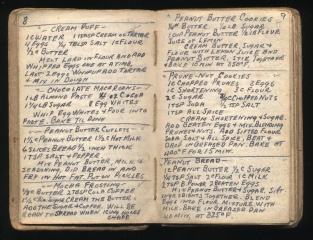 8
CREAM PUFF
1 C WATER 1 TBSP CREAM OR TARTAR
4 EGGS 1/4 TBSP SALT 1 C FLOUR
1/2 C BUTTER
MELT LARD IN FLOUR AND ADD
WHIPPED EGGS ONE AT A TIME,
LAST 2 EGGS WHIP AND ADD TARTAR
& MIX IN DOUGH
CHOCOLATE MACAROONS
1 LB ALMOND PASTE
1 1/4 LB SUGAR 8 EGG WHITES
WHIP EGG WHITES & FOLD INTO
PASTE
PEANUT BUTTER CUTLETS
1 1/2 C PEANUT BUTTER 1 1/2 C HOT MILK
6 SLICES BREAD 1/2 INCH THICK
1 TSP SALT & PEPPER
MIX PEANUT BUTTER, MILK &
SEASONING. DIP BREAD IN AND
FRY IN HOT FAT. PUT ON PICKLES
MOCHA FROSTING
1/3 C BUTTER 2 TBSP COLD COFFEE
1 1/2 C SUGAR CREAM THE BUTTER
ADD THE SUGAR & COFFEE. WILL BE
READY TO SPREAD WHEN ICING HOLDS
SHAPE
9
PEANUT BUTTER COOKIES
BUTTER 1/2 LB SUGAR
PEANUT BUTTER FLOUR
JUICE OF LEMON
CREAM BUTTER, SUGAR &
FLOUR WITH LEMON JUICE AND
PEANUT BUTTER. STIR TOGETHER
BAKE 10 MIN AT 350°F.
PRUNE-NUT COOKIES
1 C CHOPPED PRUNES 2 EGGS
1 C SHORTENING 3 C FLOUR
1 C SUGAR 3/4 C CHOPPED NUTS
1 TSP SODA 1/2 TSP SALT
1 TSP ALLSPICE
CREAM SHORTENING & SUGAR.
ADD BEATEN EGGS & MIX. BLEND IN
PRUNES & NUTS. ADD SIFTED FLOUR,
SODA SALT & ALL SPICE, BEAT &
DROP IN GREASED PAN. BAKE AT
400°F FOR 15 MIN.
PEANUT BREAD
1/2 C PEANUT BUTTER 1/2 C SUGAR
1/2 TSP SALT 2 C FLOUR 1 C MILK
2 TSP B. POWDER 2 BEATEN EGGS
MIX IN PEANUT BUTTER & SUGAR. SIFT
INGREDIENTS TOGETHER. BLEND
EGGS INTO FLOUR MIXTURE WITH
MILK. BAKE IN GREASED PAN
MIN, AT 325°F.